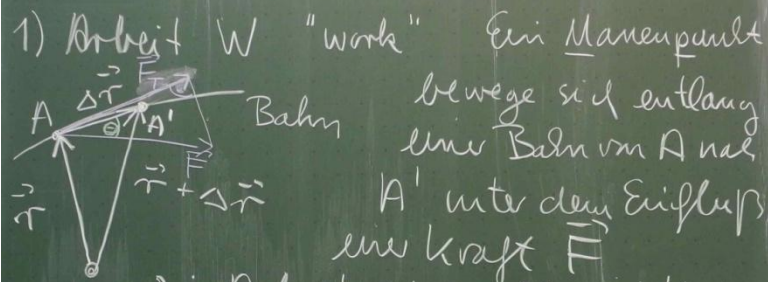 1) Arbeit W "work" Ein Massenpunkt
bewege sich entlang
einer Bahn von A nach
A' unter dem Einfluß
einer Kraft F⃗
F⃗_T
Δr⃗
A
A'
Θ
Bahn
F⃗
r⃗
r⃗ + Δr⃗
0